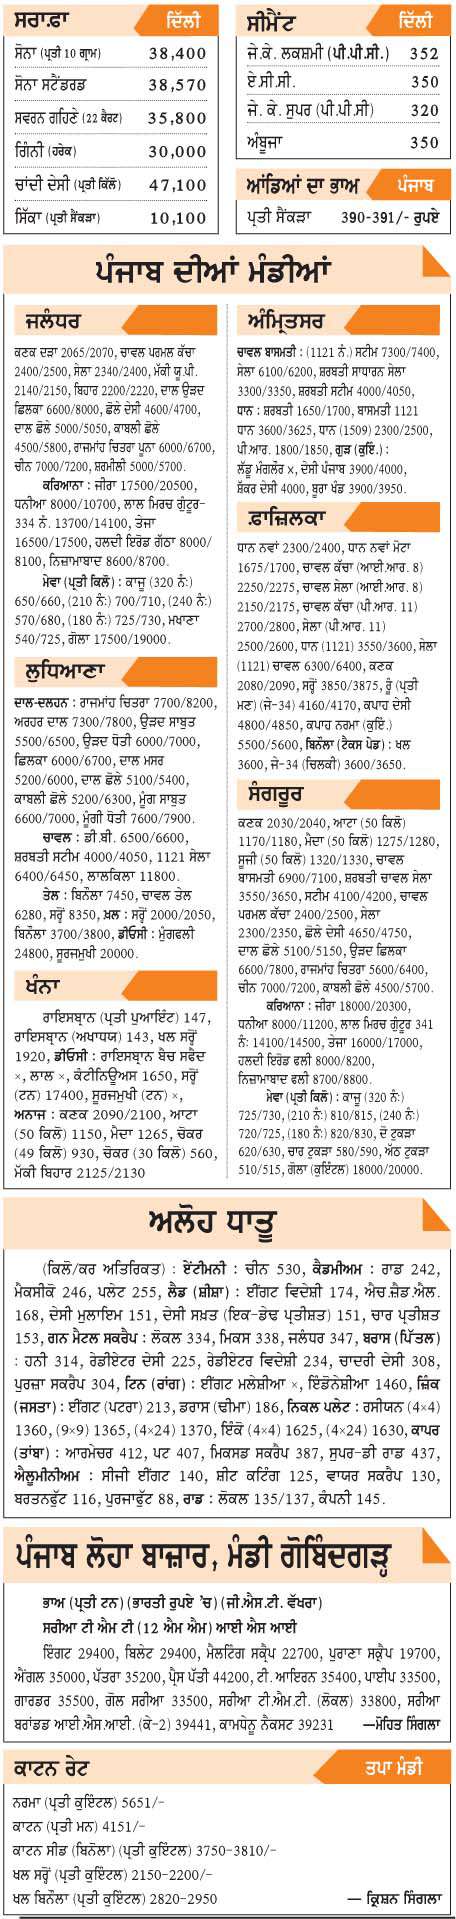 ਸਰਾ.ਫ਼ਾ ਦਿੱਲੀ
ਸੋਨਾ (ਪ੍ਰਤੀ 10 ਗ੍ਰਾਮ) 38,400
ਸੋਨਾ ਸਟੈਂਡਰਡ 38,570
ਸਵਰਨ ਗਹਿਣੇ (22 ਕੈਰਟ) 35,800
ਗਿੰਨੀ (ਹਰੇਕ) 30,000
ਚਾਂਦੀ ਦੇਸੀ (ਪ੍ਰਤੀ ਕਿੱਲੋ) 47,100
ਸਿੱਕਾ (ਪ੍ਰਤੀ ਸੈਂਕੜਾ) 10,100
ਸੀਮੈਂਟ ਦਿੱਲੀ
ਜੇ.ਕੇ. ਲਕਸ਼ਮੀ (ਪੀ.ਪੀ.ਸੀ.) 352
ਏ.ਸੀ.ਸੀ. 350
ਜੇ. ਕੇ. ਸੁਪਰ (ਪੀ.ਪੀ.ਸੀ) 320
ਅੰਬੂਜਾ 350
ਆਂਡਿਆਂ ਦਾ ਭਾਅ ਪੰਜਾਬ
ਪ੍ਰਤੀ ਸੈਂਕੜਾ 390-391/- ਰੁਪਏ
ਪੰਜਾਬ ਦੀਆਂ ਮੰਡੀਆਂ
ਜਲੰਧਰ
ਕਣਕ ਦੜਾ 2065/2070, ਚਾਵਲ ਪਰਮਲ ਕੱਚਾ
2400/2500, ਸੇਲਾ 2340/2400, ਮੱਕੀ ਯੂ.ਪੀ.
2140/2150, ਬਿਹਾਰ 2200/2220, ਦਾਲ ਉੜਦ
ਛਿਲਕਾ 6600/8000, ਛੋਲੇ ਦੇਸੀ 4600/4700,
ਦਾਲ ਛੋਲੇ 5000/5050, ਕਾਬਲੀ ਛੋਲੇ
4500/5800, ਰਾਜਮਾਂਹ ਚਿਤਰਾ ਪੂਨਾ 6000/6700,
ਚੀਨ 7000/7200, ਸ਼ਰਮੀਲੀ 5000/5700.
ਕਰਿਆਨਾ : ਜੀਰਾ 17500/20500,
ਧਨੀਆ 8000/10700, ਲਾਲ ਮਿਰਚ ਗੁੰਟੂਰ-
334 ਨੰ. 13700/14100, ਤੇਜਾ
16500/17500, ਹਲਦੀ ਇਰੋਡ ਗੱਠਾ 8000/
8100, ਨਿਜ਼ਾਮਾਬਾਦ 8600/8700.
ਮੇਵਾ (ਪ੍ਰਤੀ ਕਿਲੋ) : ਕਾਜੂ (320 ਨੰ:)
650/660, (210 ਨੰ:) 700/710, (240 ਨੰ:)
570/680, (180 ਨੰ:) 725/730, ਮਖਾਣਾ
540/725, ਗੋਲਾ 17500/19000.
ਲੁਧਿਆਣਾ
ਦਾਲ-ਦਲਹਨ : ਰਾਜਮਾਂਹ ਚਿਤਰਾ 7700/8200,
ਅਰਹਰ ਦਾਲ 7300/7800, ਉੜਦ ਸਾਬੁਤ
5500/6500, ਉੜਦ ਧੋਤੀ 6000/7000,
ਛਿਲਕਾ 6000/6700, ਦਾਲ ਮਸਰ
5200/6000, ਦਾਲ ਛੋਲੇ 5100/5400,
ਕਾਬਲੀ ਛੋਲੇ 5200/6300, ਮੂੰਗ ਸਾਬੁਤ
6600/7000, ਮੂੰਗੀ ਧੋਤੀ 7600/7900.
ਚਾਵਲ : ਡੀ.ਬੀ. 6500/6600,
ਸ਼ਰਬਤੀ ਸਟੀਮ 4000/4050, 1121 ਸੇਲਾ
6400/6450, ਲਾਲਕਿਲਾ 11800.
ਤੇਲ : ਬਿਨੌਲਾ 7450, ਚਾਵਲ ਤੇਲ
6280, ਸਰ੍ਹੋਂ 8350, ਖ਼ਲ : ਸਰ੍ਹੋਂ 2000/2050,
ਬਿਨੌਲਾ 3700/3800, ਡੀਓਸੀ : ਮੂੰਗਫਲੀ
24800, ਸੂਰਜਮੁਖੀ 20000.
ਖੰਨਾ
ਰਾਇਸਬ੍ਰਾਨ (ਪ੍ਰਤੀ ਪੁਆਇੰਟ) 147,
ਰਾਇਸਬ੍ਰਾਨ (ਅਖਾਧਯ) 143, ਖਲ ਸਰ੍ਹੋਂ
1920, ਡੀਓਸੀ : ਰਾਇਸਬ੍ਰਾਨ ਬੈਚ ਸਫੈਦ
×, ਲਾਲ ×, ਕੰਟੀਨਿਊਅਸ 1650, ਸਰ੍ਹੋਂ
(ਟਨ) 17400, ਸੂਰਜਮੁਖੀ (ਟਨ) ×,
ਅਨਾਜ : ਕਣਕ 2090/2100, ਆਟਾ
(50 ਕਿਲੋ) 1150, ਮੈਦਾ 1265, ਚੋਕਰ
(49 ਕਿਲੋ) 930, ਚੋਕਰ (30 ਕਿਲੋ) 560,
ਮੱਕੀ ਬਿਹਾਰ 2125/2130
ਅੰਮ੍ਰਿਤਸਰ
ਚਾਵਲ ਬਾਸਮਤੀ : (1121 ਨੰ.) ਸਟੀਮ 7300/7400,
ਸੇਲਾ 6100/6200, ਸ਼ਰਬਤੀ ਸਾਧਾਰਨ ਸੇਲਾ
3300/3350, ਸ਼ਰਬਤੀ ਸਟੀਮ 4000/4050,
ਧਾਨ : ਸ਼ਰਬਤੀ 1650/1700, ਬਾਸਮਤੀ 1121
ਧਾਨ 3600/3625, ਧਾਨ (1509) 2300/2500,
ਪੀ.ਆਰ. 1800/1850, ਗੁੜ (ਕੁਇੰ.) :
ਲੱਡੂ ਮੰਗਲੌਰ x, ਦੇਸੀ ਪੰਜਾਬ 3900/4000,
ਸ਼ੱਕਰ ਦੇਸੀ 4000, ਬੂਰਾ ਖੰਡ 3900/3950.
ਫ਼ਾਜ਼ਿਲਕਾ
ਧਾਨ ਨਵਾਂ 2300/2400, ਧਾਨ ਨਵਾਂ ਮੋਟਾ
1675/1700, ਚਾਵਲ ਕੱਚਾ (ਆਈ.ਆਰ. 8)
2250/2275, ਚਾਵਲ ਸੇਲਾ (ਆਈ.ਆਰ. 8)
2150/2175, ਚਾਵਲ ਕੱਚਾ (ਪੀ.ਆਰ. 11)
2700/2800, ਸੇਲਾ (ਪੀ.ਆਰ. 11)
2500/2600, ਧਾਨ (1121) 3550/3600, ਸੇਲਾ
(1121) ਚਾਵਲ 6300/6400, ਕਣਕ
2080/2090, ਸਰ੍ਹੋਂ 3850/3875, ਰੂੰ (ਪ੍ਰਤੀ
ਮਣ) (ਜੇ-34) 4160/4170, ਕਪਾਹ ਦੇਸੀ
4800/4850, ਕਪਾਹ ਨਰਮਾ (ਕੁਇੰ.)
5500/5600, ਬਿਨੌਲਾ (ਟੈਕਸ ਪੇਡ) : ਖਲ
3600, ਜੇ-34 (ਚਿਲਕੀ) 3600/3650.
ਸੰਗਰੂਰ
ਕਣਕ 2030/2040, ਆਟਾ (50 ਕਿਲੋ)
1170/1180, ਮੈਦਾ (50 ਕਿਲੋ) 1275/1280,
ਸੂਜੀ (50 ਕਿਲੋ) 1320/1330, ਚਾਵਲ
ਬਾਸਮਤੀ 6900/7100, ਸ਼ਰਬਤੀ ਚਾਵਲ ਸੇਲਾ
3550/3650, ਸਟੀਮ 4100/4200, ਚਾਵਲ
ਪਰਮਲ ਕੱਚਾ 2400/2500, ਸੇਲਾ
2300/2350, ਛੋਲੇ ਦੇਸੀ 4650/4750,
ਦਾਲ ਛੋਲੇ 5100/5150, ਉੜਦ ਛਿਲਕਾ
6600/7800, ਰਾਜਮਾਂਹ ਚਿਤਰਾ 5600/6400,
ਚੀਨ 7000/7200, ਕਾਬਲੀ ਛੋਲੇ 4500/5700.
ਕਰਿਆਨਾ : ਜੀਰਾ 18000/20300,
ਧਨੀਆ 8000/11200, ਲਾਲ ਮਿਰਚ ਗੁੰਟੂਰ 341
ਨੰ: 14100/14500, ਤੇਜਾ 16000/17000,
ਹਲਦੀ ਇਰੋਡ ਫਲੀ 8000/8200,
ਨਿਜ਼ਾਮਾਬਾਦ ਫਲੀ 8700/8800.
ਮੇਵਾ (ਪ੍ਰਤੀ ਕਿਲੋ) : ਕਾਜੂ (320 ਨੰ:)
725/730, (210 ਨੰ:) 810/815, (240 ਨੰ:)
720/725, (180 ਨੰ:) 820/830, ਦੋ ਟੁਕੜਾ
620/630, ਚਾਰ ਟੁਕੜਾ 580/590, ਅੱਠ ਟੁਕੜਾ
510/515, ਗੋਲਾ (ਕੁਇੰਟਲ) 18000/20000.
ਅਲੋਹ ਧਾਤੂ
(ਕਿਲੋ/ਕਰ ਅਤਿਰਿਕਤ) : ਏਂਟੀਮਨੀ : ਚੀਨ 530, ਕੈਡਮੀਅਮ : ਰਾਡ 242,
ਮੈਕਸੀਕੋ 246, ਪਲੇਟ 255, ਲੈੱਡ (ਸ਼ੀਸ਼ਾ) : ਈਂਗਟ ਵਿਦੇਸ਼ੀ 174, ਐਚ.ਜ਼ੈੱਡ.ਐਲ.
168, ਦੇਸੀ ਮੁਲਾਇਮ 151, ਦੇਸੀ ਸਖ਼ਤ (ਇਕ-ਡੇਢ ਪ੍ਰਤੀਸ਼ਤ) 151, ਚਾਰ ਪ੍ਰਤੀਸ਼ਤ
153, ਗਨ ਮੈਟਲ ਸਕਰੈਪ : ਲੋਕਲ 334, ਮਿਕਸ 338, ਜਲੰਧਰ 347, ਬਰਾਸ (ਪਿੱਤਲ)
: ਹਨੀ 314, ਰੇਡੀਏਟਰ ਦੇਸੀ 225, ਰੇਡੀਏਟਰ ਵਿਦੇਸ਼ੀ 234, ਚਾਦਰੀ ਦੇਸੀ 308,
ਪੁਰਜ਼ਾ ਸਕਰੈਪ 304, ਟਿਨ (ਰਾਂਗ) : ਈਂਗਟ ਮਲੇਸ਼ੀਆ ×, ਇੰਡੋਨੇਸ਼ੀਆ 1460, ਜ਼ਿੰਕ
(ਜਸਤਾ) : ਈਂਗਟ (ਪਟਰਾ) 213, ਡਰਾਸ (ਢੀਮਾ) 186, ਨਿਕਲ ਪਲੇਟ : ਰਸੀਯਨ (4×4)
1360, (9×9) 1365, (4×24) 1370, ਇੰਕੋ (4×4) 1625, (4×24) 1630, ਕਾਪਰ
(ਤਾਂਬਾ) : ਆਰਮੇਚਰ 412, ਪਟ 407, ਮਿਕਸਡ ਸਕਰੈਪ 387, ਸੁਪਰ-ਡੀ ਰਾਡ 437,
ਐਲੂਮੀਨੀਅਮ : ਸੀਜੀ ਈਂਗਟ 140, ਸ਼ੀਟ ਕਟਿੰਗ 125, ਵਾਯਰ ਸਕਰੈਪ 130,
ਬਰਤਨਫੁੱਟ 116, ਪੁਰਜਾਫੁੱਟ 88, ਰਾਡ : ਲੋਕਲ 135/137, ਕੰਪਨੀ 145.
ਪੰਜਾਬ ਲੋਹਾ ਬਾਜ਼ਾਰ, ਮੰਡੀ ਗੋਬਿੰਦਗੜ੍ਹ
ਭਾਅ (ਪ੍ਰਤੀ ਟਨ) (ਭਾਰਤੀ ਰੁਪਏ 'ਚ) (ਜੀ.ਐਸ.ਟੀ. ਵੱਖਰਾ)
ਸਰੀਆ ਟੀ ਐਮ ਟੀ (12 ਐਮ ਐਮ) ਆਈ ਐਸ ਆਈ
ਇੰਗਟ 29400, ਬਿਲੇਟ 29400, ਮੈਲਟਿੰਗ ਸਕ੍ਰੈਪ 22700, ਪੁਰਾਣਾ ਸਕ੍ਰੈਪ 19700,
ਐਂਗਲ 35000, ਪੱਤਰਾ 35200, ਪ੍ਰੈਸ ਪੱਤੀ 44200, ਟੀ. ਆਇਰਨ 35400, ਪਾਈਪ 33500,
ਗਾਰਡਰ 35500, ਗੋਲ ਸਰੀਆ 33500, ਸਰੀਆ ਟੀ.ਐਮ.ਟੀ. (ਲੋਕਲ) 33800, ਸਰੀਆ
ਬਰਾਂਡਡ ਆਈ.ਐਸ.ਆਈ. (ਕੇ-2) 39441, ਕਾਮਧੇਨੂ ਨੈਕਸਟ 39231 —ਮੋਹਿਤ ਸਿੰਗਲਾ
ਕਾਟਨ ਰੇਟ ਤਪਾ ਮੰਡੀ
ਨਰਮਾ (ਪ੍ਰਤੀ ਕੁਇੰਟਲ) 5651/-
ਕਾਟਨ (ਪ੍ਰਤੀ ਮਨ) 4151/-
ਕਾਟਨ ਸੀਡ (ਬਿਨੋਲਾ) (ਪ੍ਰਤੀ ਕੁਇੰਟਲ) 3750-3810/-
ਖਲ ਸਰ੍ਹੋਂ (ਪ੍ਰਤੀ ਕੁਇੰਟਲ) 2150-2200/-
ਖਲ ਬਿਨੌਲਾ (ਪ੍ਰਤੀ ਕੁਇੰਟਲ) 2820-2950 — ਕ੍ਰਿਸ਼ਨ ਸਿੰਗਲਾ